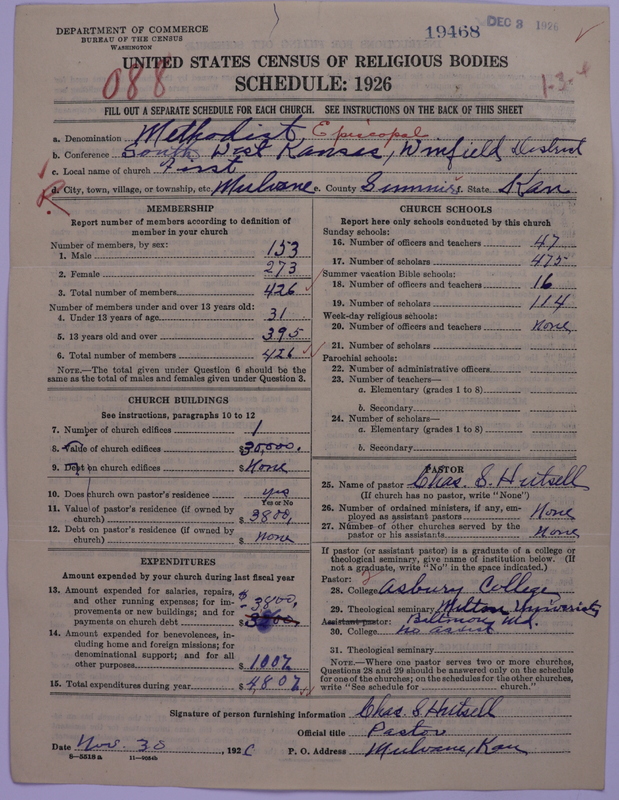 DEPARTMENT OF COMMERCE
BUREAU OF THE CENSUS
WASHINGTON
19468
DEC 3 1926
UNITED STATES CENSUS OF RELIGIOUS BODIES
088
SCHEDULE: 1926
1-3-4
FILL OUT A SEPARATE SCHEDULE FOR EACH CHURCH. SEE INSTRUCTIONS ON THE BACK OF THIS SHEET
a. Denomination Methodist Episcopal
b. Conference South West Kansas, Winfield District
c. Local name of church First
R
d. City, town, village, or township, etc. Mulvane e. County Sumner f. State Kan
MEMBERSHIP
Report number of members according to definition of member in your church
Number of members, by sex:
1. Male 153
2. Female 273
3. Total number of members 426
Number of members under and over 13 years old:
4. Under 13 years of age 31
5. 13 years old and over 395
6. Total number of members 426
NOTE.—The total given under Question 6 should be the
same as the total of males and females given under Question 3.
CHURCH BUILDINGS
See instructions, paragraphs 10 to 12
7. Number of church edifices 1
8. Value of church edifices $30,000.
9. Debt on church edifices $None
10. Does church own pastor's residence yes
Yes or No
11. Value of pastor's residence (if owned by
church) $3800,
12. Debt on pastor's residence (if owned by
church) $None
EXPENDITURES
Amount expended by your church during last fiscal year
13. Amount expended for salaries, repairs,
and other running expenses; for im-
provements or new buildings; and for
payments on church debt $3800,
14. Amount expended for benevolences, in-
cluding home and foreign missions; for
denominational support; and for all
other purposes $1007
15. Total expenditures during year $4,807
CHURCH SCHOOLS
Report here only schools conducted by this church
Sunday schools:
16. Number of officers and teachers 47
17. Number of scholars 475
Summer vacation Bible schools:
18. Number of officers and teachers 16
19. Number of scholars 114
Week-day religious schools:
20. Number of officers and teachers None
21. Number of scholars
Parochial schools:
22. Number of administrative officers
23. Number of teachers—
a. Elementary (grades 1 to 8)
b. Secondary
24. Number of scholars—
a. Elementary (grades 1 to 8)
b. Secondary
PASTOR
25. Name of pastor Chas. S. Hutsell
(If church has no pastor, write "None")
26. Number of ordained ministers, if any, em-
ployed as assistant pastors None
27. Number of other churches served by the
pastor or his assistants None
If pastor (or assistant pastor) is a graduate of a college or
theological seminary, give name of institution below. (If
not a graduate, write "No" in the space indicated.)
Pastor:
28. College Asbury College
29. Theological seminary Milton University
Assistant pastor: Baltimore Md.
30. College No assist
31. Theological seminary
NOTE.—Where one pastor serves two or more churches,
Questions 28 and 29 should be answered only on the schedule
for one of the churches; on the schedules for the other churches,
write "See schedule for church."
Signature of person furnishing information Chas S Hutsell
Official title Pastor
Date Nov. 30, 1926 P. O. Address Mulvane, Kan
8—5518a 11—9064b